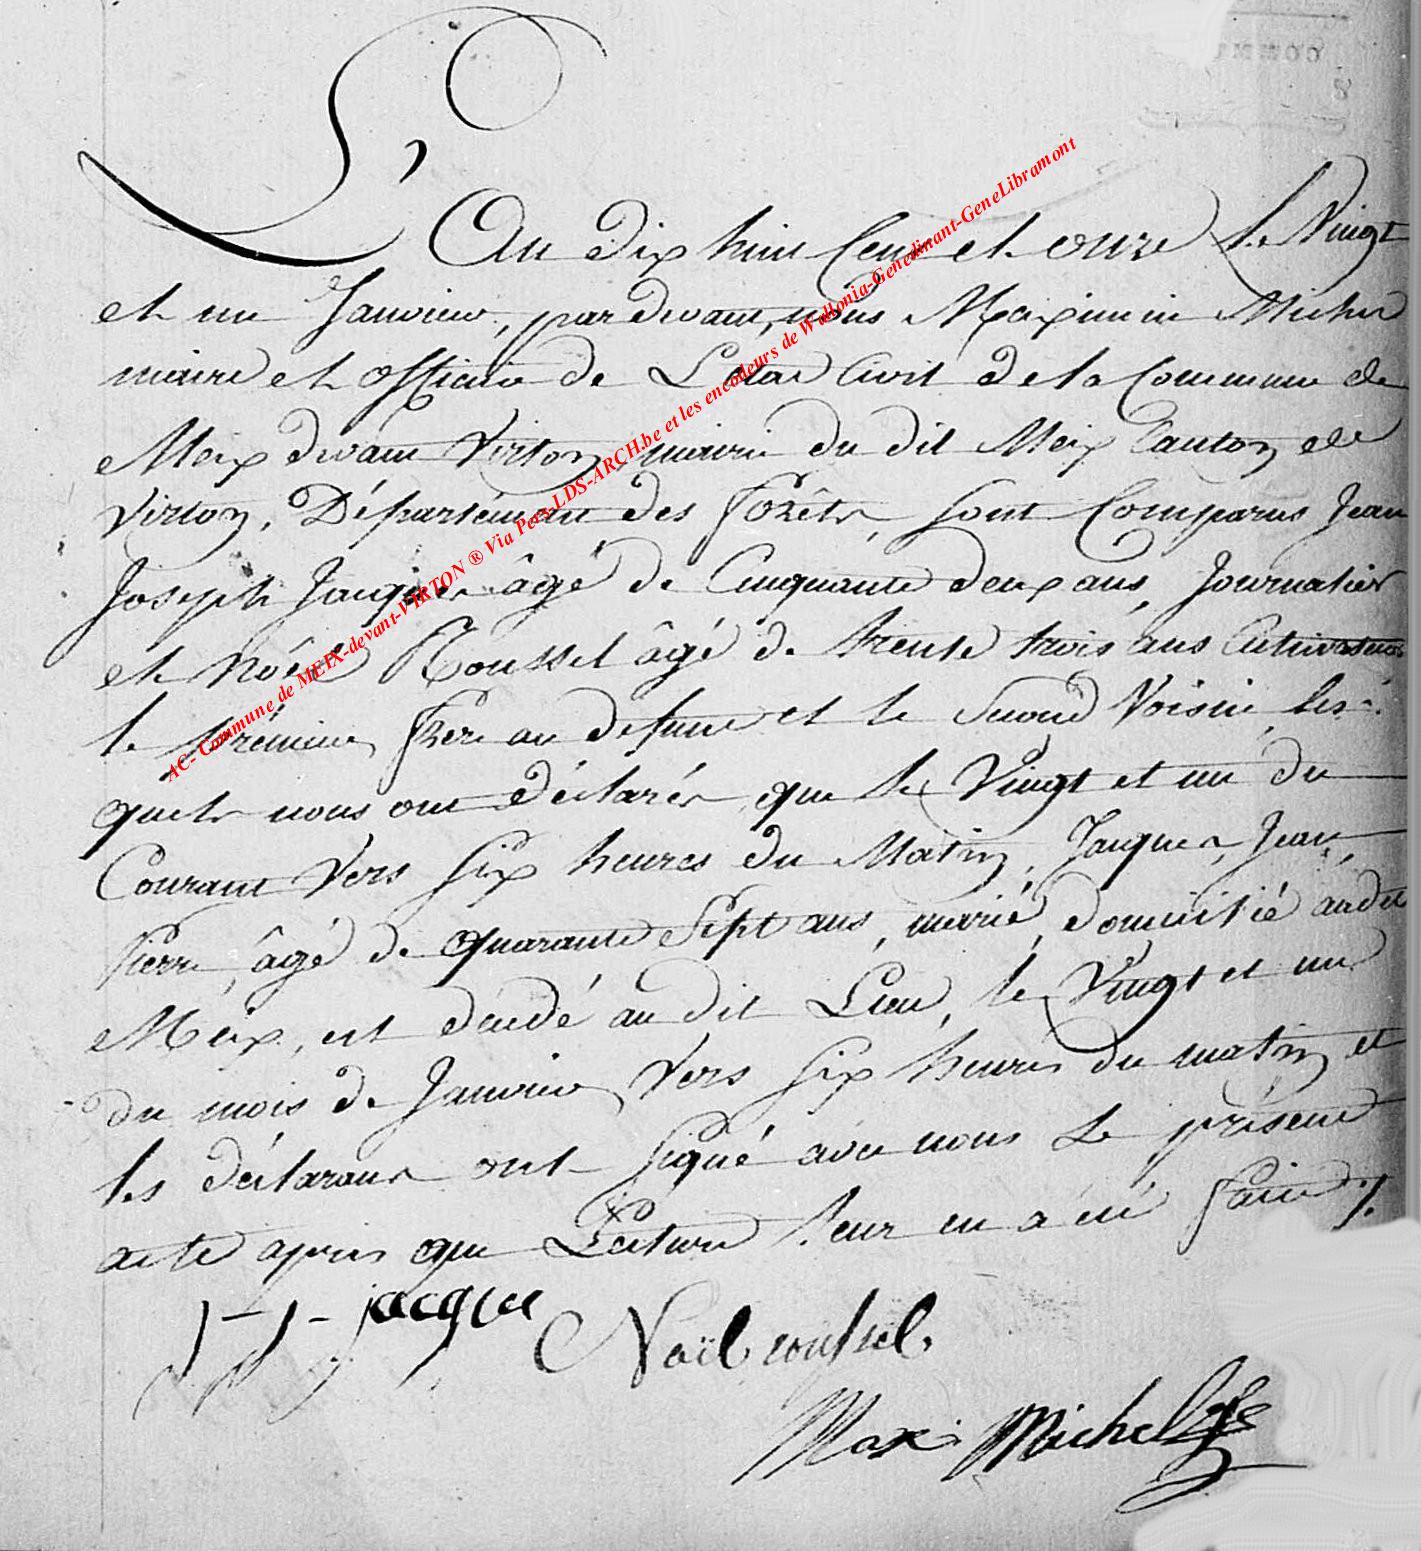 L'An dix huit Cent et onze le Vingt
et un Janvier, par devant nous Maximin Michel
maire et officier de L'état Civil de la Commune de
Meix devant Virton, mairie du dit Meix Canton de
Virton, Département des Forêts, sont Comparus Jean
Joseph Jacques âgé de Cinquante deux ans, Journalier
et Nöel Roussel âgé de trente trois ans Cultivateur
le prémier frere au defunt et le second Voisin, les-
quels nous ont déclarés que le Vingt et un du
Courant vers six heures du Matin, Jacques, Jean,
Pierre, âgé de quarante Sept ans, marié, domicilié audit
Meix, est décédé au dit Lieu, le Vingt et un
du mois de Janvier, vers six heures du matin et
les déclarans ont signé avec nous le présent
acte après que Lecture leur en a été faite ./.
J-J- jacque
Noël roussel.
Max. Michel
AC- Commune de MEIX-devant-VIRTON ® Via Pers-LDS-ARCH.be et les encodeurs de Wallonia-Genedinant-GeneLibramont